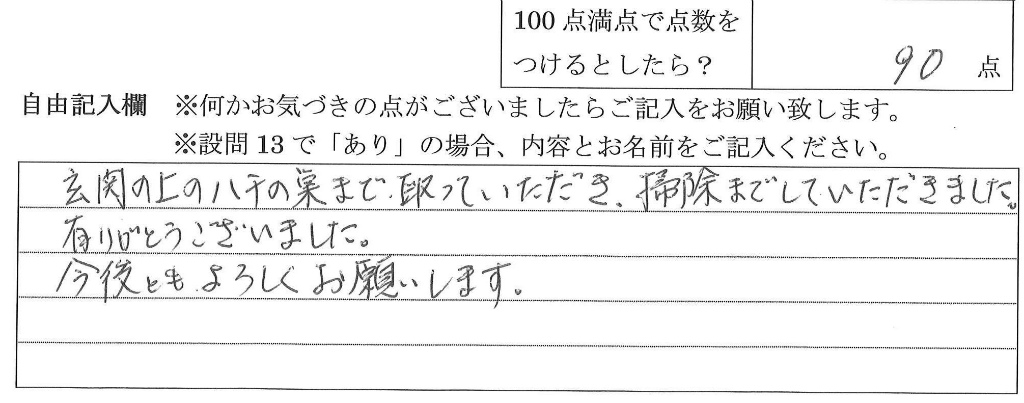 100 点満点で点数を
つけるとしたら？
90 点
自由記入欄 ※何かお気づきの点がございましたらご記入をお願い致します。
※設問 13 で「あり」の場合、内容とお名前をご記入ください。
玄関の上のハチの巣まで取っていただき、掃除までしていただきました。
有りがとうございました。
今後ともよろしくお願いします。